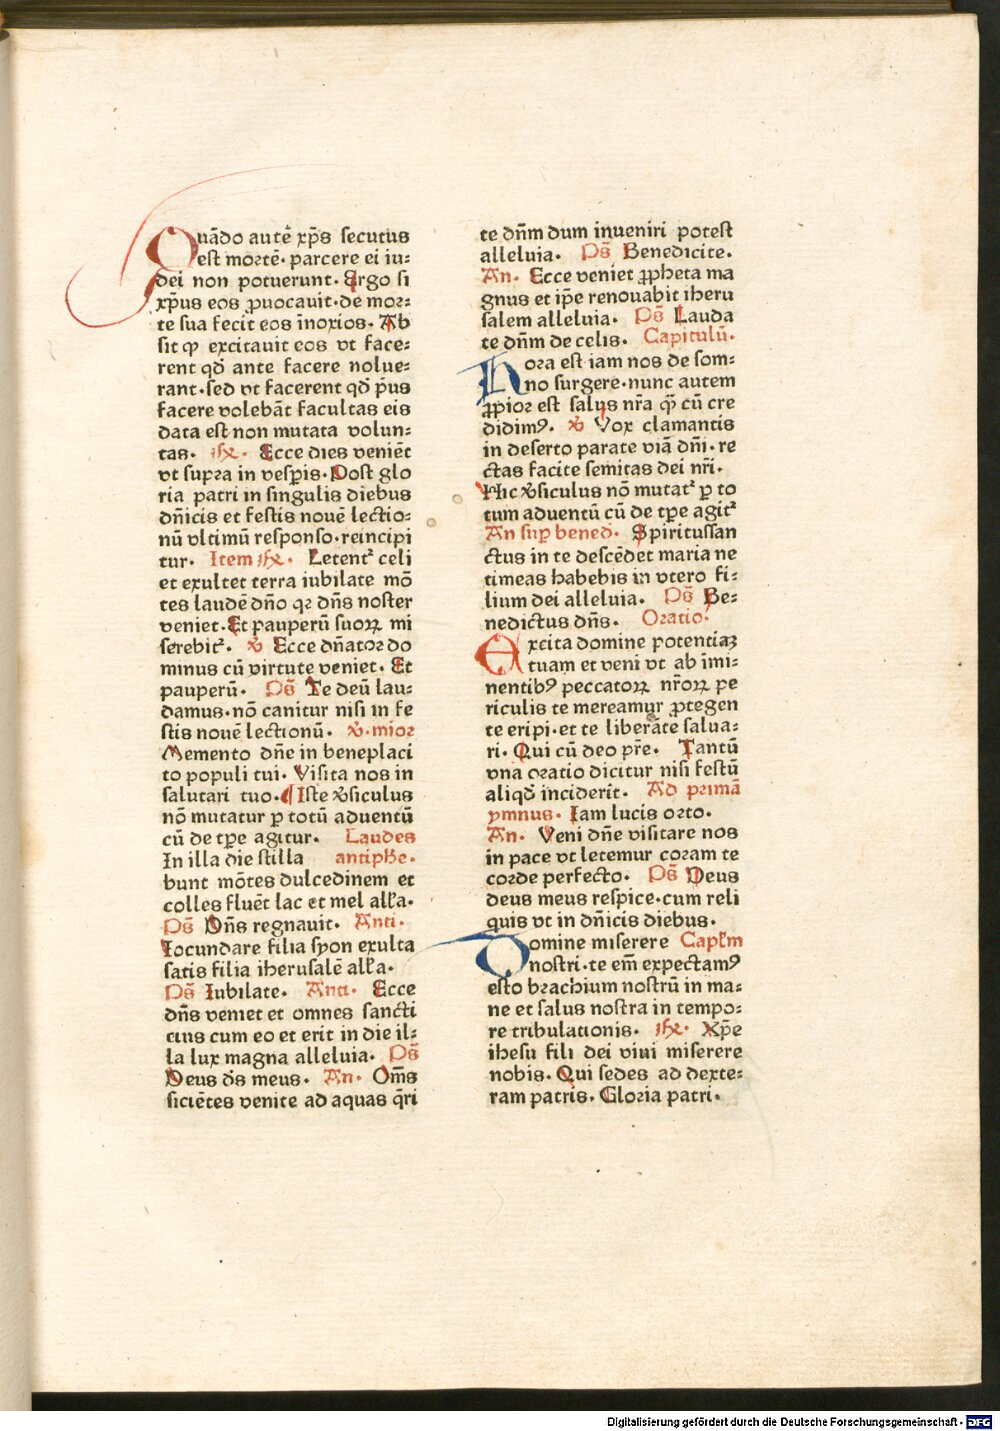 Quādo autē xp̄s secutus
est mortē· parcere ei iu⸗
dei non potuerunt· Ergo si
xp̄us eos ꝓuocauit·de mor⸗
te sua fecit eos īnoxios· Ab
sit qͥ excitauit eos vt face⸗
rent qd̄ ante facere nolue⸗
rant·sed vt facerent qd̄ pͥus
facere volebāt facultas eis
data est non mutata volun⸗
tas· ℟· Ecce dies veniēt
vt supra in vesꝑis· Post glo
ria patri in singulis diebus
dn̄icis et festis nouē lectio⸗
nū vltimū responso·reincipi
tur· Item ℟· Letentᷣ celi
et exultet terra iubilate mō
tes laudē dn̄o qꝛ dn̄s noster
veniet·Et pauperū suoꝝ mi
serebitᷣ· ℣ Ecce dn̄ator do
minus cū virtute veniet· Et
pauperū· Ps̄ Te deū lau⸗
damus·nō canitur nisi in fe
stis nouē lectionū· ℣·mior
Memento dn̄e in beneplaci
to populi tui· Visita nos in
salutari tuo· Iste ℣siculus
nō mutatur ꝑ totū aduentū
cū de tꝑe agitur· Laudes
In illa die stilla antiphe·
bunt mōtes dulcedinem et
colles fluēt lac et mel all'a·
Ps̄ Dn̄s regnauit· Anti·
Iocundare filia syon exulta
satis filia iherusalē all'a·
Ps̄ Iubilate· Anti· Ecce
dn̄s veniet et omnes sancti
eius cum eo et erit in die il⸗
la lux magna alleluia· Ps̄
Deus ds̄ meus· An· Om̄s
siciētes venite ad aquas q̄ri
te dn̄m dum inueniri potest
alleluia· Ps̄ Benedicite·
An· Ecce veniet ꝓpheta ma
gnus et ip̄e renouabit iheru
salem alleluia· Ps̄ Lauda
te dn̄m de celis· Capitulū·
Hora est iam nos de som⸗
no surgere·nunc autem
ꝓpior est salus nr̄a qͣ̄ cū cre
didimꝰ· ℣ Vox clamantis
in deserto parate viā dn̄i· re
ctas facite semitas dei nr̄i·
Hic ℣siculus nō mutatᷣ ꝑ to
tum aduentū cū de tꝑe agitᷣ
An suꝑ bened· Spiritussan
ctus in te descēdet maria ne
timeas habebis in vtero fi⸗
lium dei alleluia· Ps̄ Be⸗
nedictus dn̄s· Oratio·
Excita domine potentiaꝫ
tuam et veni vt ab īmi⸗
nentibꝰ peccatoꝝ nr̄oꝝ pe
riculis te mereamur ꝓtegen
te eripi·et te liberāte salua⸗
ri· Qui cū deo pr̄e· Tantū
vna oratio dicitur nisi festū
aliqd̄ inciderit· Ad primā
ymnus· Iam lucis orto·
An· Veni dn̄e visitare nos
in pace vt letemur coram te
corde perfecto· Ps̄ Deus
deus meus respice·cum reli
quis vt in dn̄icis diebus·
Domine miserere Capl'm
nostri·te em̄ expectamꝰ
esto brachium nostrū in ma⸗
ne et salus nostra in tempo⸗
re tribulationis· ℟· Xp̄e
ihesu fili dei viui miserere
nobis· Qui sedes ad dexte⸗
ram patris· Gloria patri·
Digitalisierung gefördert durch die Deutsche Forschungsgemeinschaft - DFG